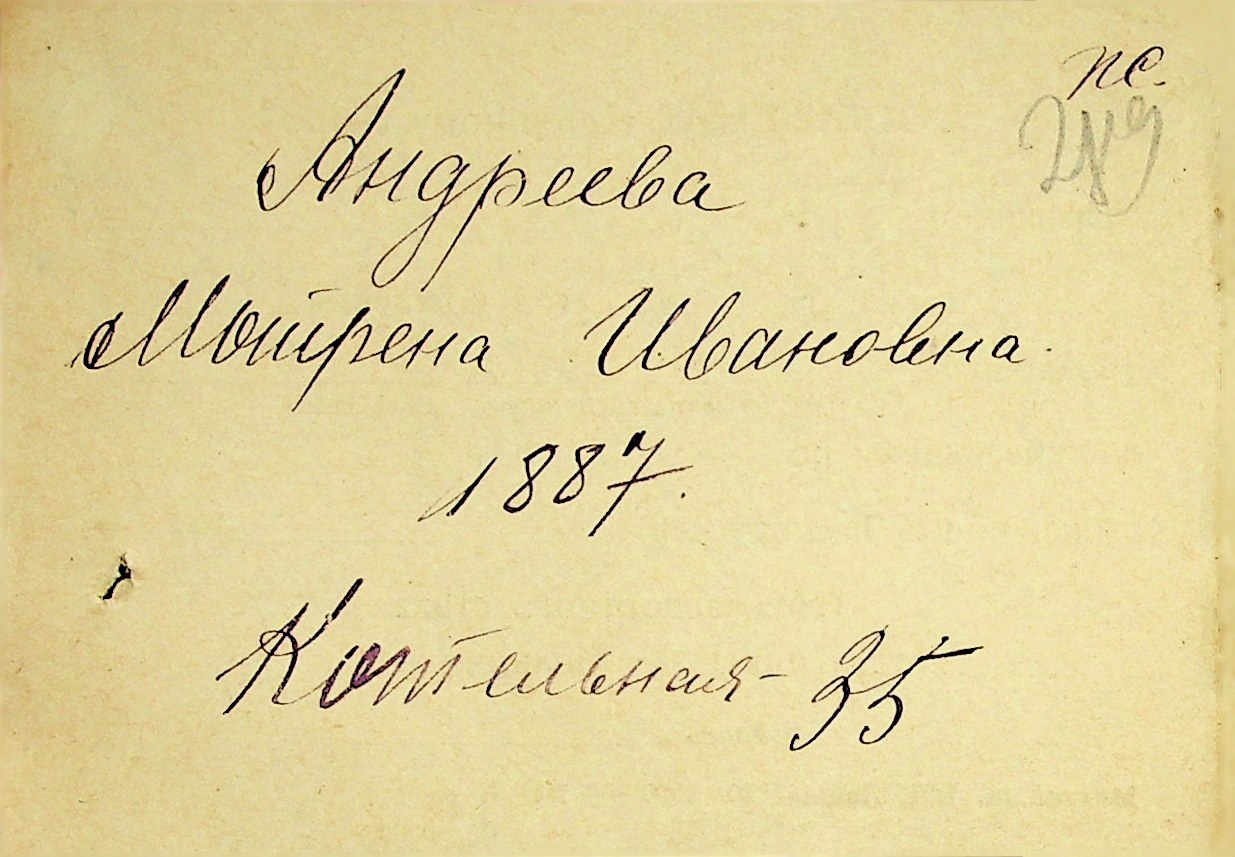 пс.
Андреева
Мотрена Ивановна
1887.
Котельная - 35